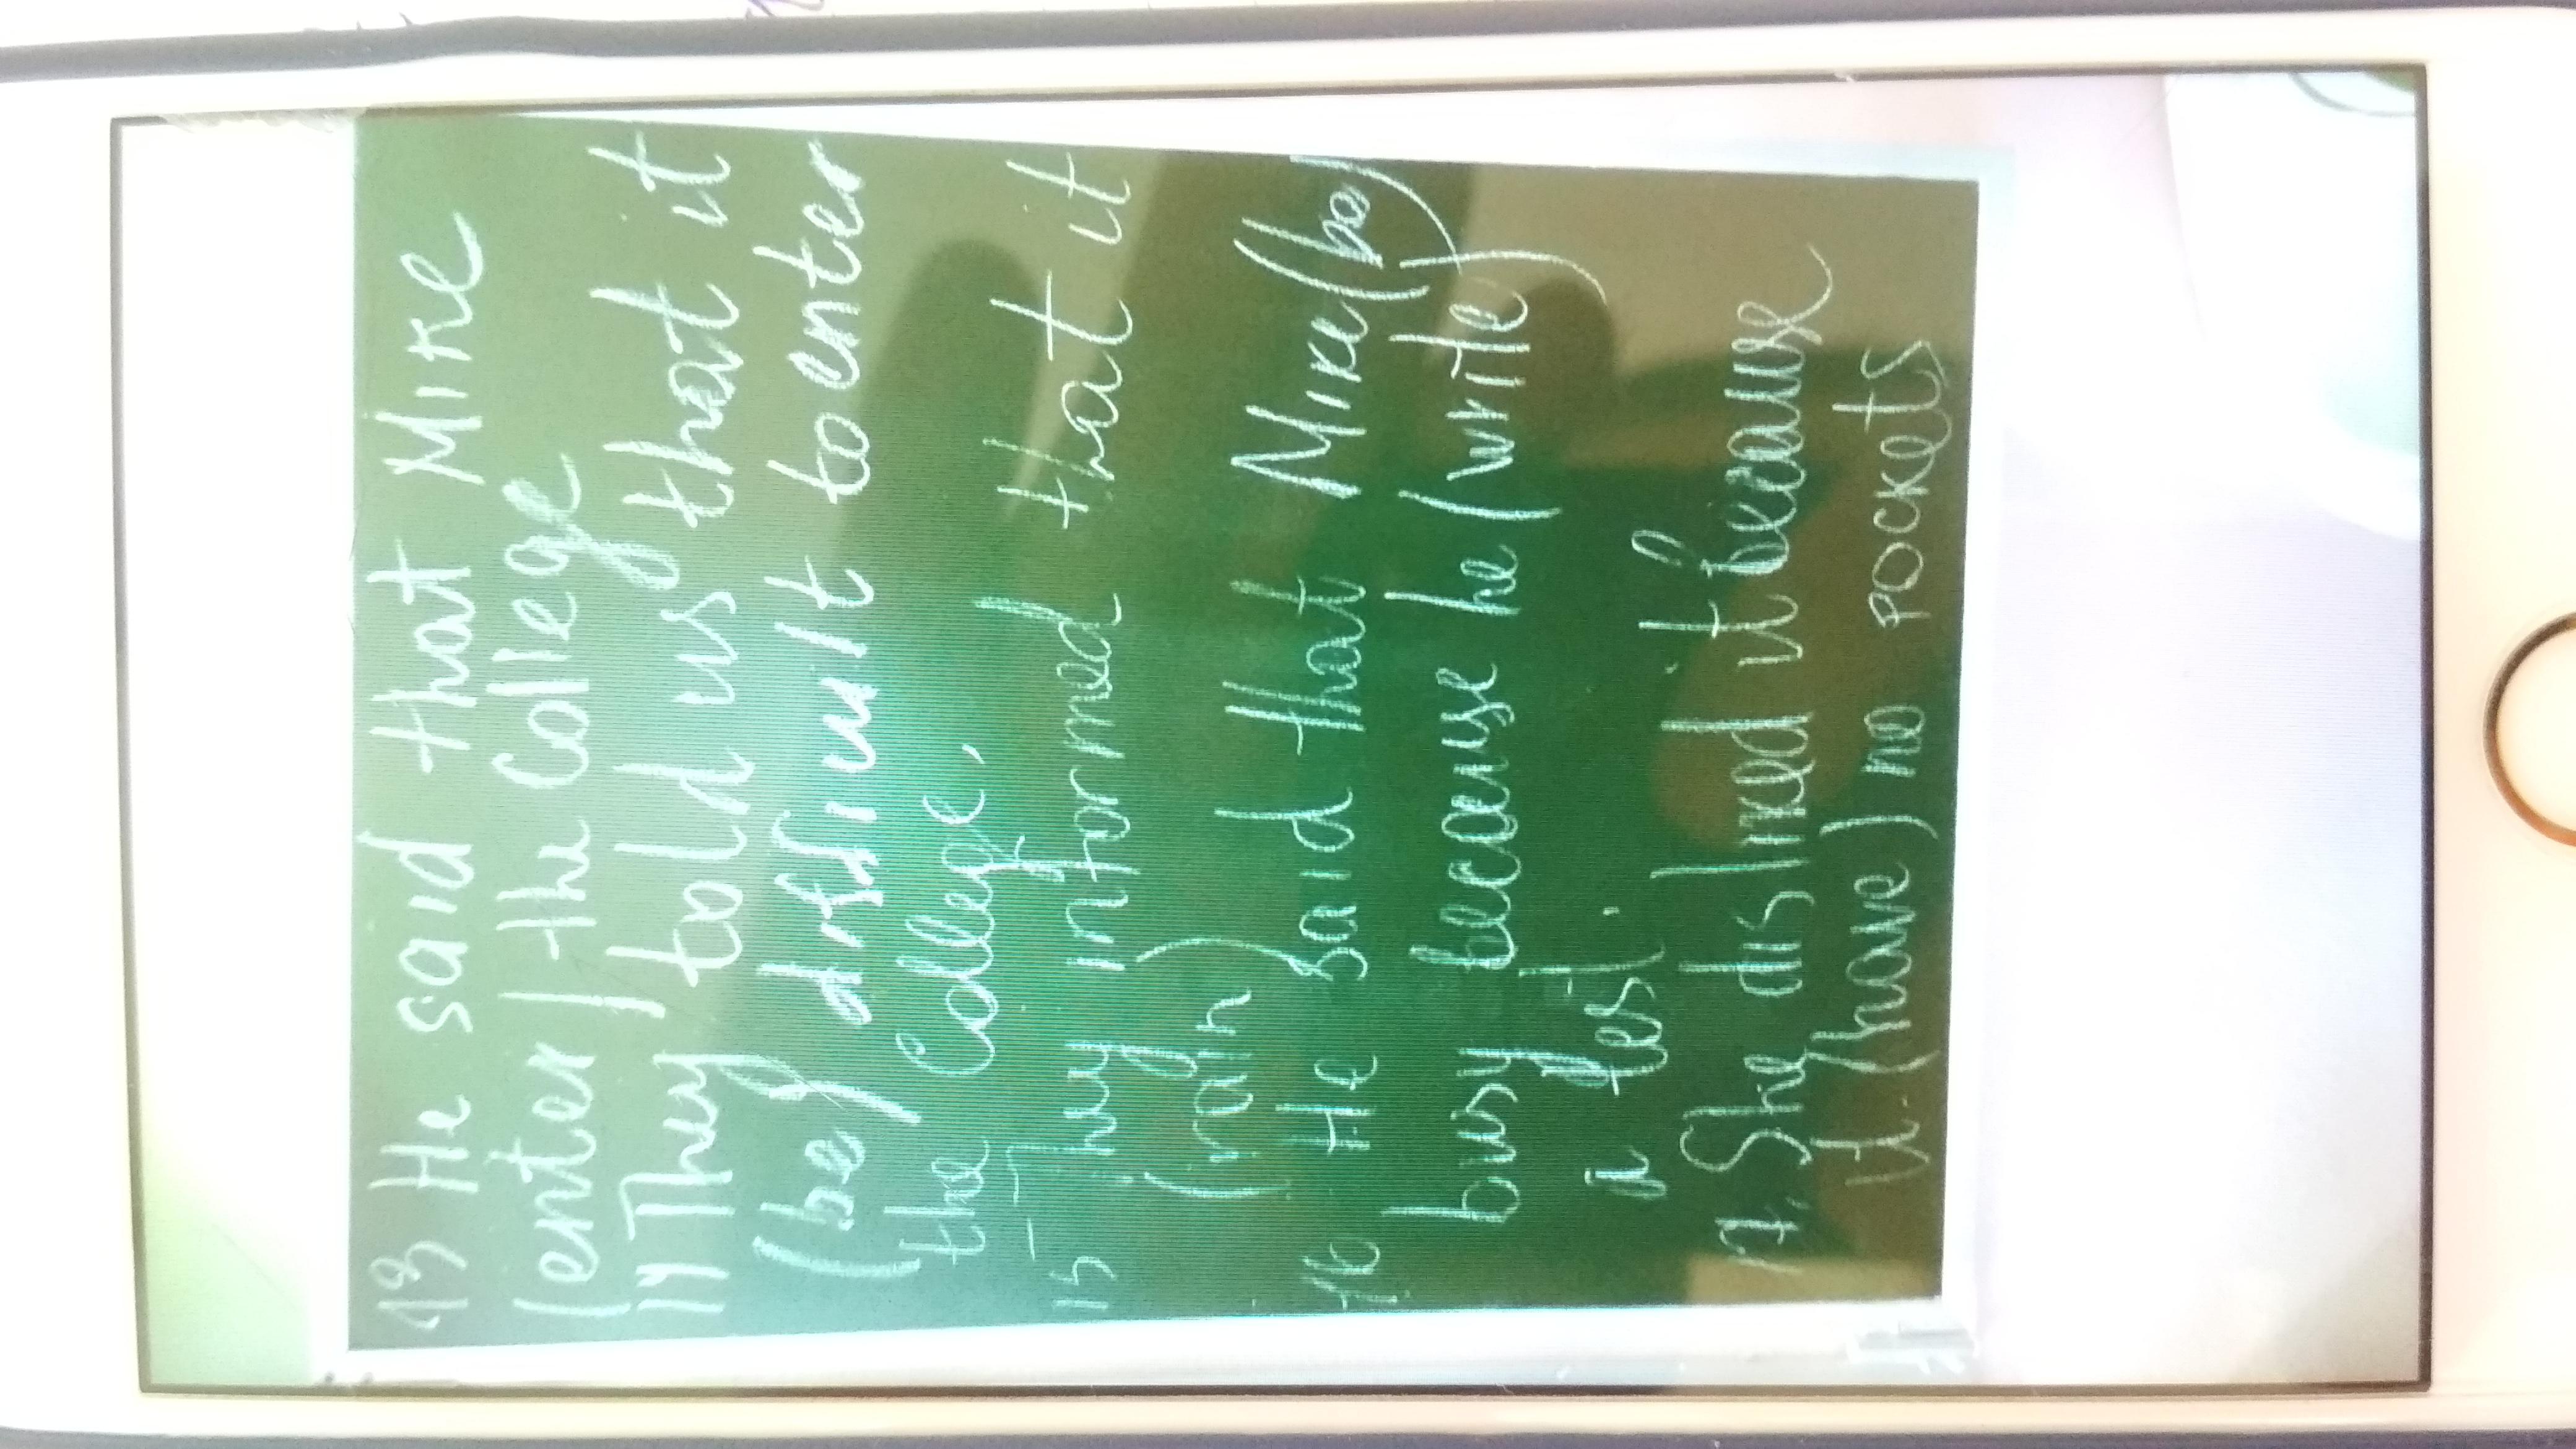 13 He said that Mike
(enter) the College
14 They told us that it
(be) difficult to enter
the College.
15 They informed that it
(rain)
16 He said that Mike (be)
busy because he (write)
a test.
17. She disliked it because
it (have) no pockets